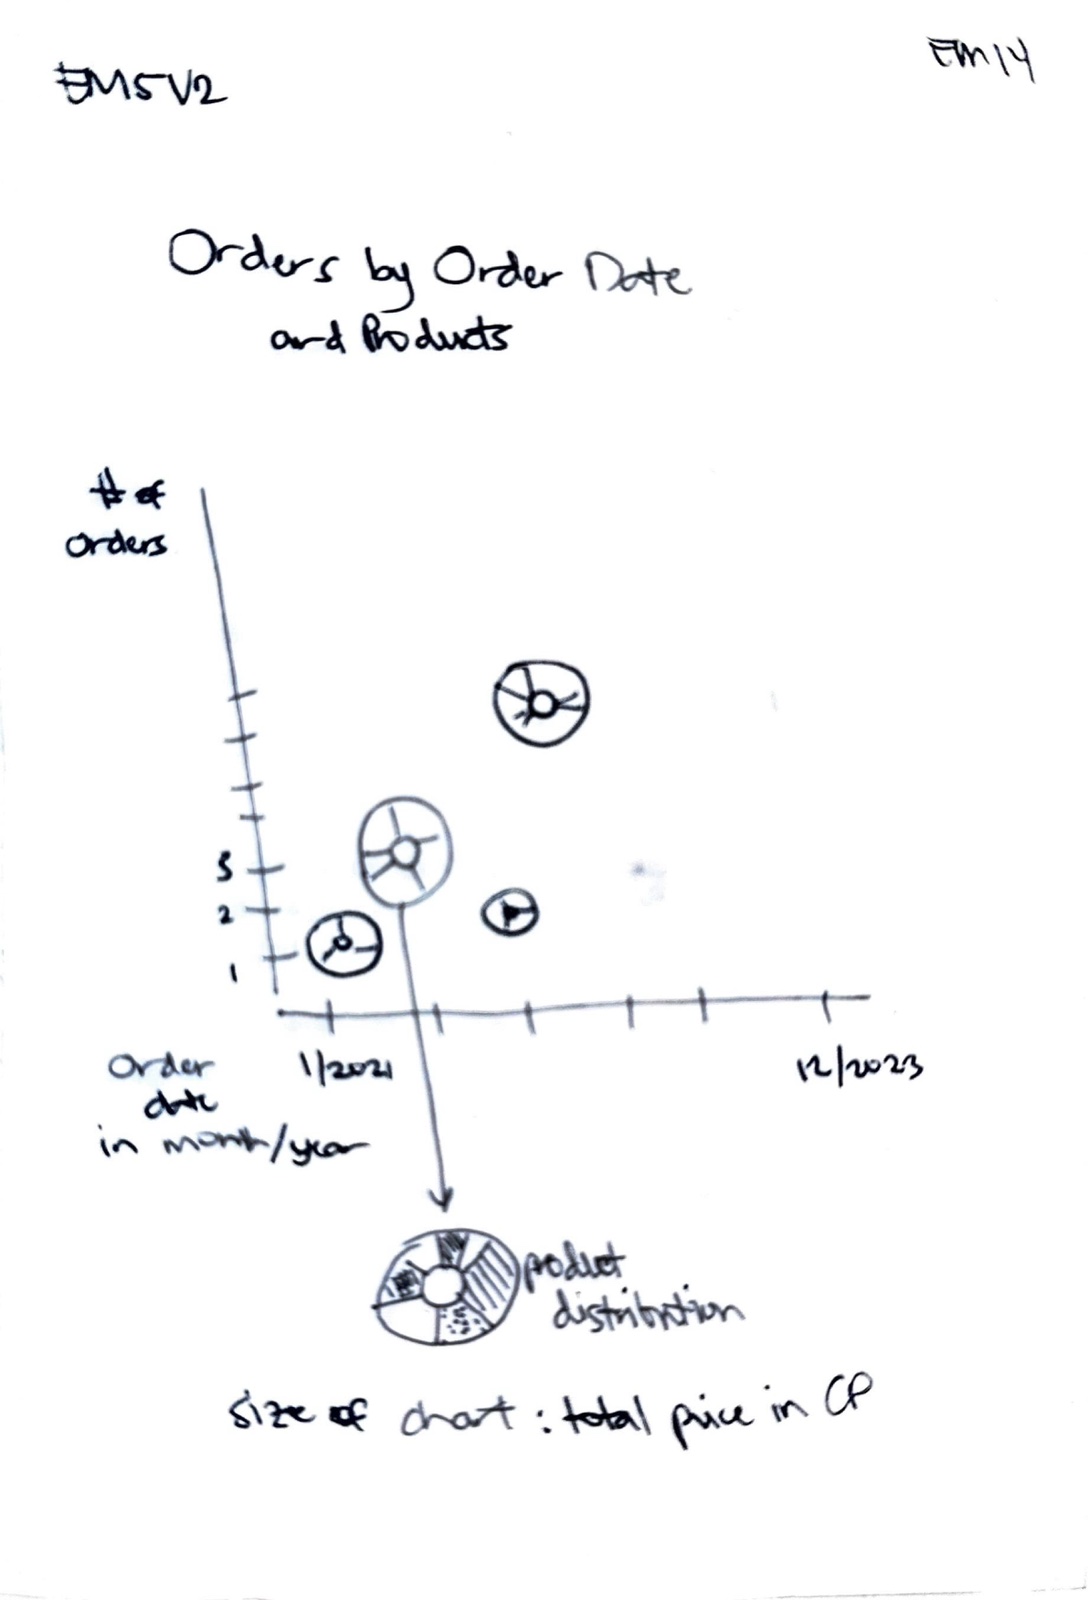 EM5V2
EM14
Orders by Order Date
and Products
# of
orders
5
2
1
1/2021
12/2023
Order
date
in month/year
product
distribution
size of chart : total price in CP